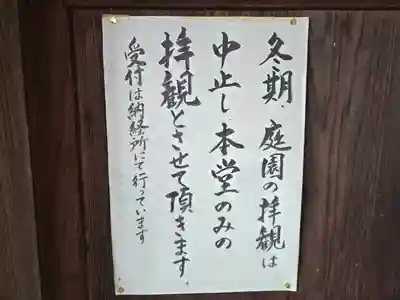 冬期、庭園の拝観は
中止し本堂のみの
拝観とさせて頂きます
受付は納経所にて行っています